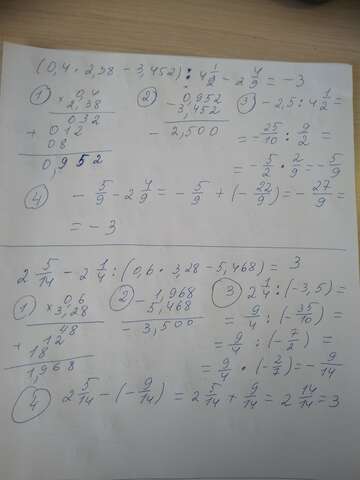 (0,4 · 2,38 − 3,452) : 4 1/2 − 2 4/9 = −3
1) × 0,4
2,38
032
+ 012
08
0,952
2) − 0,952
3,452
− 2,500
3) −2,5 : 4 1/2 =
= − 25/10 : 9/2 =
= − 5/2 · 2/9 = − 5/9
4) − 5/9 − 2 4/9 = − 5/9 + (− 22/9) = − 27/9 =
= − 3
2 5/14 − 2 1/4 : (0,6 · 3,28 − 5,468) = 3
1) × 0,6
3,28
48
+ 12
18
1,968
2) − 1,968
5,468
− 3,500
3) 2 1/4 : (−3,5) =
= 9/4 : (− 35/10) =
= 9/4 : (− 7/2) =
= 9/4 · (− 2/7) = − 9/14
4) 2 5/14 − (− 9/14) = 2 5/14 + 9/14 = 2 14/14 = 3